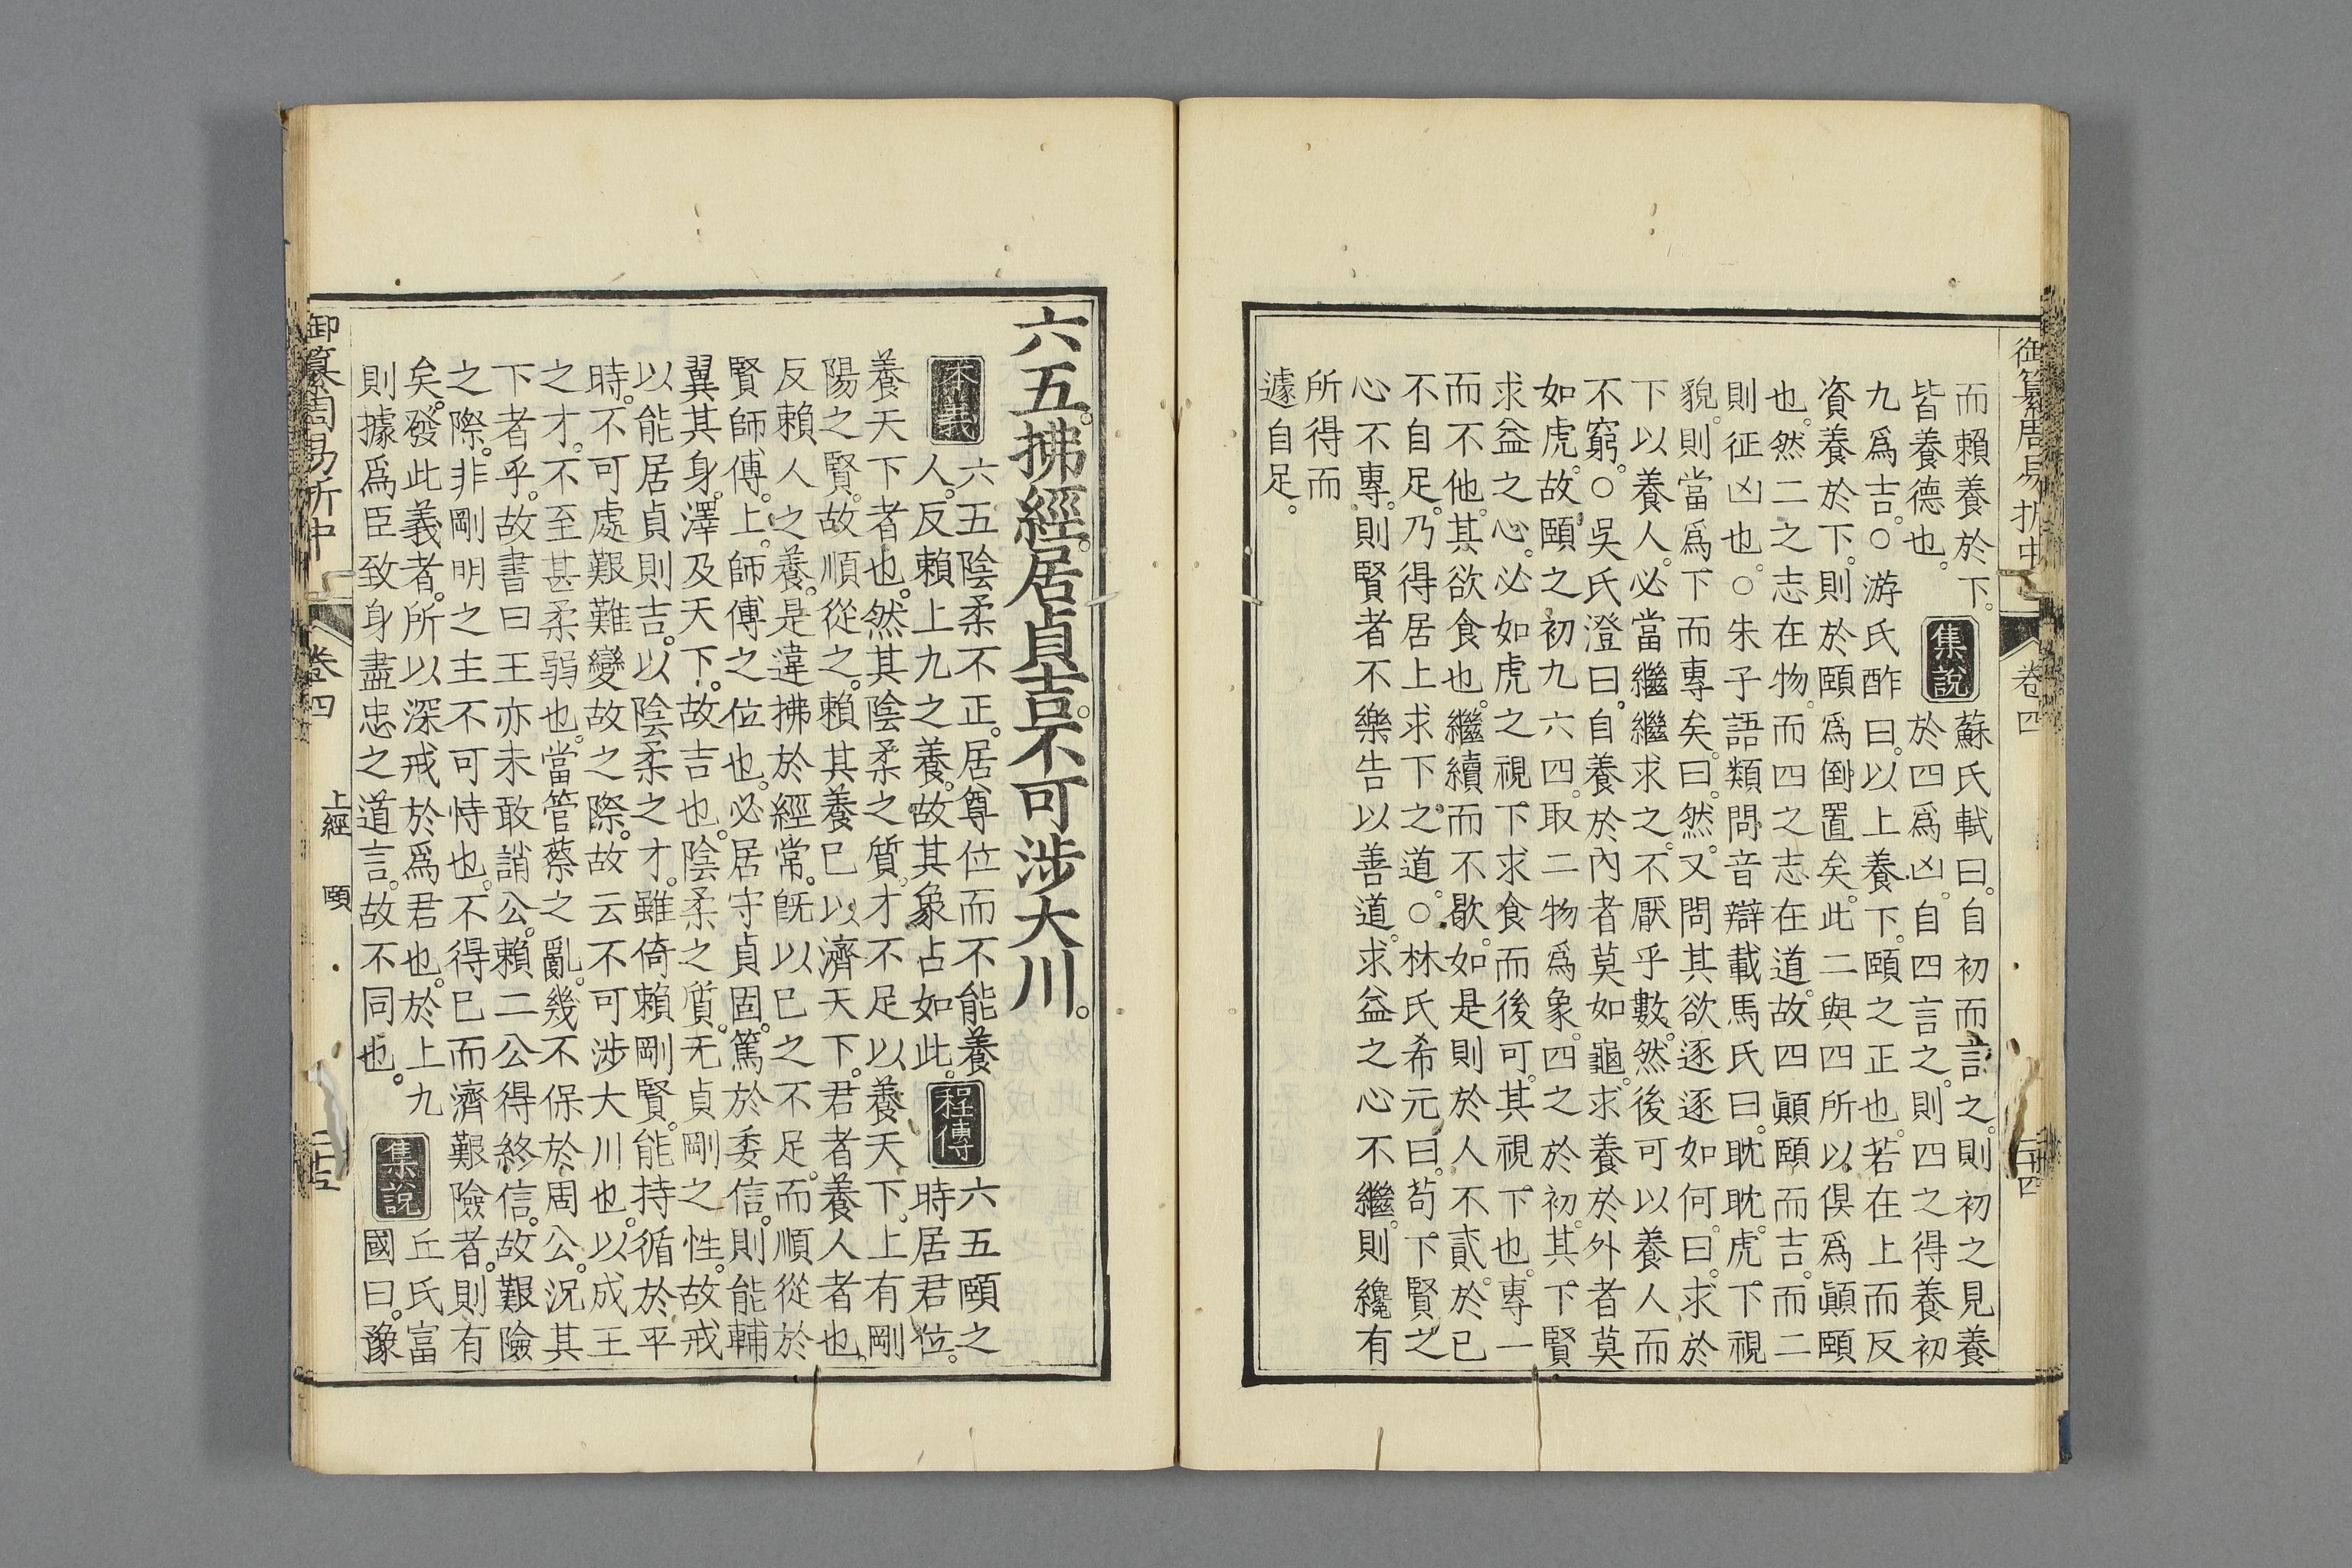 御纂周易折中 卷四 二十四
而賴養於下。
皆養德也。
集說
蘇氏軾曰。自初而言之。則初之見養
於四爲凶。自四言之。則四之得養初
九爲吉。○游氏酢曰。以上養下。頤之正也。若在上而反
資養於下。則於頤爲倒置矣。此二與四所以俱爲顚頤
也。然二之志在物。而四之志在道。故四顚頤而吉。而二
則征凶也。○朱子語類問音辯載馬氏曰。眈眈。虎下視
貌。則當爲下而專矣。曰。然。又問其欲逐逐如何。曰。求於
下以養人。必當繼繼求之。不厭乎數。然後可以養人而
不窮。○吳氏澄曰。自養於內者莫如龜。求養於外者莫
如虎。故頤之初九六四。取二物爲象。四之於初。其下賢
求益之心。必如虎之視下求食而後可。其視下也。專一
而不他。其欲食也。繼續而不歇。如是則於人不貳。於已
不自足。乃得居上求下之道。○林氏希元曰。苟下賢之
心不專。則賢者不樂告以善道。求益之心不繼。則纔有
所得而
遽自足。
六五。拂經。居貞吉。不可涉大川。
本義
六五陰柔不正。居尊位而不能養
人。反賴上九之養。故其象占如此。
程傳
六五頤之
時居君位。
養天下者也。然其陰柔之質。才不足以養天下。上有剛
陽之賢。故順從之。賴其養已以濟天下。君者養人者也。
反賴人之養。是違拂於經常。旣以已之不足。而順從於
賢師傅。上。師傅之位也。必居守貞固。篤於委信。則能輔
翼其身。澤及天下。故吉也。陰柔之質。无貞剛之性。故戒
以能居貞則吉。以陰柔之才。雖倚賴剛賢。能持循於平
時。不可處艱難變故之際。故云不可涉大川也。以成王
之才。不至甚柔弱也。當管蔡之亂。幾不保於周公。況其
下者乎。故書曰王亦未敢誚公。賴二公得終信。故艱險
之際。非剛明之主不可恃也。不得已而濟艱險者。則有
矣。發此義者。所以深戒於爲君也。於上九
則據爲臣致身盡忠之道言。故不同也。
集說
丘氏富
國曰。豫
御纂周易折中 卷四 上經 頤 二十五